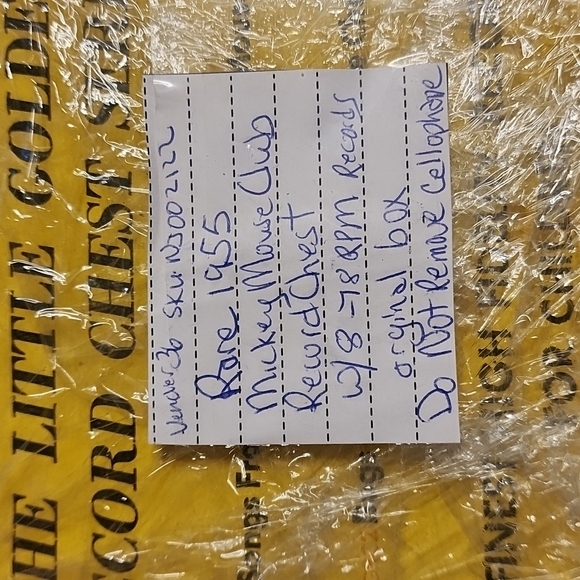 THE LITTLE GOLDE
CORD CHEST SE
Vendor 36 SKU: NJ002122
Rare 1955
Mickey Mouse Club
Record Chest
w/8 -78 RPM Records
original box
Do Not Remove Cellophane
Songs Fro
FINEST HIGH
FOR CH